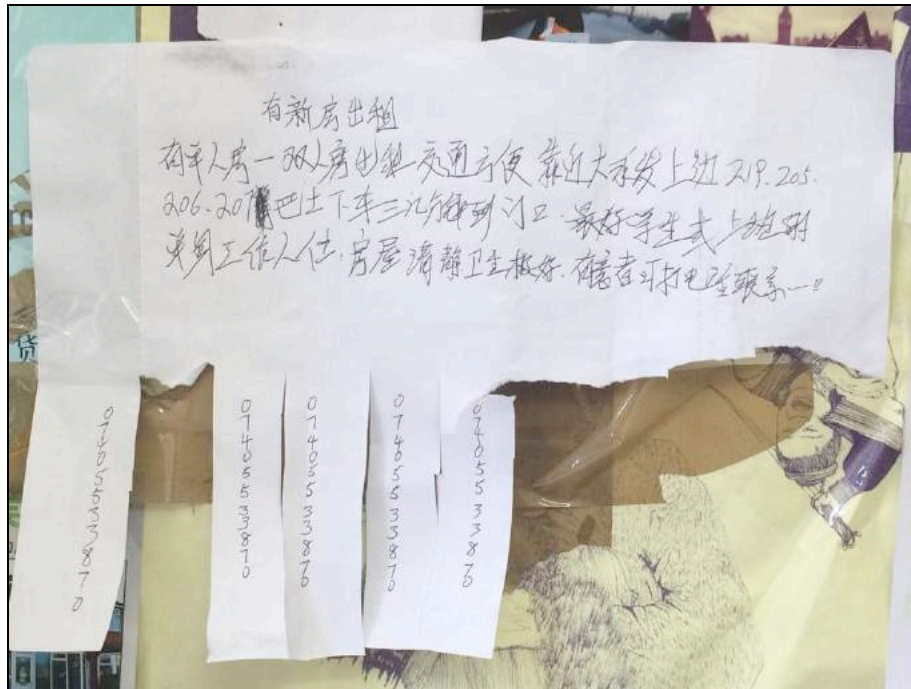 有新房出租
有单人房一双人房出租交通方便 靠近大家发上边 219.205.
206.20 巴士下车三分钟到门口. 最好学生或上班族
单身工作人仕, 房屋清静卫生极好. 有意者可打电话联系一!!
货
07405533870
07405533870
07405533870
07405533870
07405533870